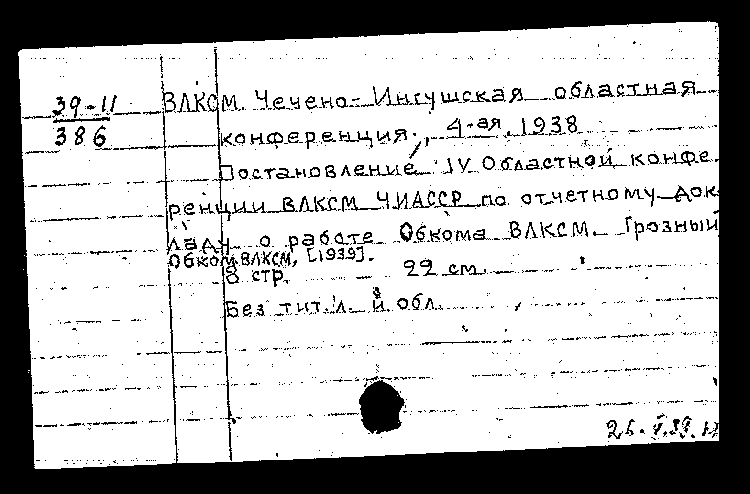 39-11
386
ВЛКСМ. Чечено-Ингушская областная
конференция., 4-ая, 1938
Постановление IV Областной конфе
ренции ВЛКСМ ЧИАССР по отчетному док
ладу о работе Обкома ВЛКСМ. Грозный
Обком ВЛКСМ, [1939].
8 стр. 22 см.
Без тит. л. и обл.